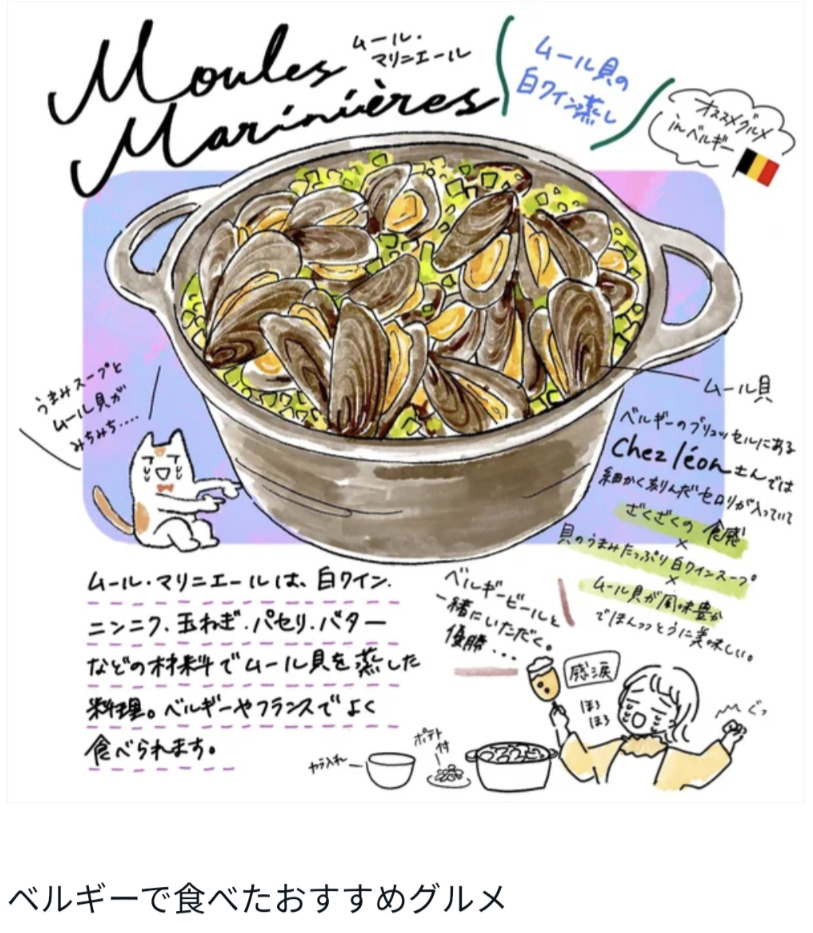 Moules
Marinières
ムール・
マリニエール
ムール貝の
白ワイン蒸し
オススメグルメ
in ベルギー
うまみスープと
ムール貝が
みちみち....
ムール貝
ベルギーのブリュッセルにある
Chez léonさんでは
細かく刻んだセロリが入っていて
ざくざくの食感
×
貝のうまみたっぷり白ワインスープ
×
ムール貝が風味豊か
でほんっっとうに美味しい。
ムール・マリニエールは、白ワイン、
ニンニク、玉ねぎ、パセリ、バター
などの材料でムール貝を蒸した
料理。ベルギーやフランスでよく
食べられます。
ベルギービールと
一緒にいただく。
優勝...
感涙
ほろ
ほろ
ぐっ
ポテト
付
カラ入れ
ベルギーで食べたおすすめグルメ